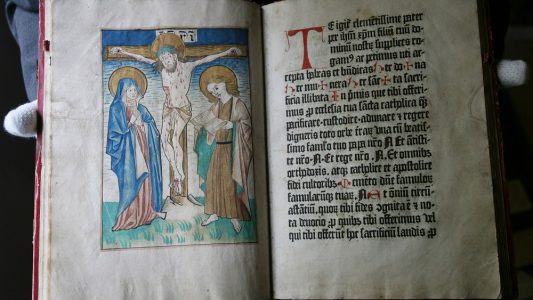 INRI
TE igit̄ clemētissime pater
per ihm̄ xp̄m filiū tuū do
minū nostrū supplices ro
gam⁹ ac petimus uti ac
cepta habeas et bn̄dicas hec ✠ do
hec ✠ mu nera hec ✠ san cta sacri
ficia illibata In primis que tibi offerim⁹
ꝓ ecclesia tua sancta catholica quā
pacificare custodire adunare et regere
digneris toto orbe t̄raꝝ vna cū beatis
simo famulo tuo papa nr̄o N Et antisti
te nr̄o N Et rege nr̄o N Et omnibus
orthodoxis atq̄ꝫ catholice et apostolice
fidei cultoribus Memēto dn̄e famuloꝝ
famularūqꝫ tuaꝝ N Et oīm circū
astantiū, quoꝝ tibi fides cognita ē et no
ta deuocio ꝓ quibus tibi offerimus vel
qui tibi offerūt hoc sacrificiū laudis ꝓ